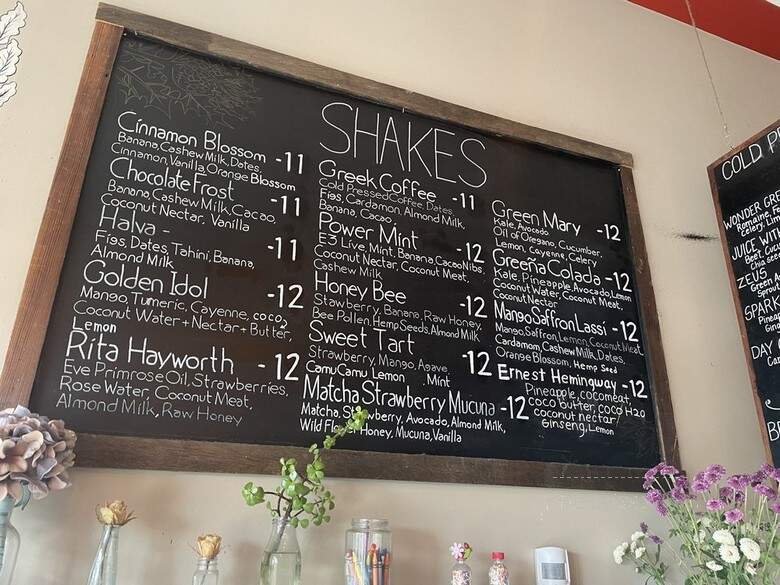 SHAKES
Cinnamon Blossom -11
Banana, Cashew Milk, Dates,
Cinnamon, Vanilla, Orange Blossom
Chocolate Frost -11
Banana, Cashew Milk, Cacao,
Coconut Nectar, Vanilla
Halva - -11
Figs, Dates, Tahini, Banana,
Almond Milk
Golden Idol -12
Mango, Tumeric, Cayenne, coco
Coconut Water + Nectar + Butter,
Lemon
Rita Hayworth -12
Eve Primrose Oil, Strawberries,
Rose Water, Coconut Meat,
Almond Milk, Raw Honey
Greek Coffee -11
Cold Pressed Coffee, Dates,
Figs, Cardamon, Almond Milk,
Banana, Cacao,
Power Mint -12
E3 Live, Mint, Banana, Cacao Nibs,
Coconut Nectar, Coconut Meat,
Cashew Milk
Honey Bee -12
Stawberry, Banana, Raw Honey,
Bee Pollen, Hemp Seeds, Almond Milk
Sweet Tart -12
Strawberry, Mango, Agave
Camu Camu Lemon, Mint
Matcha Strawberry Mucuna -12
Matcha, Strawberry, Avocado, Almond Milk,
Wild Flower Honey, Mucuna, Vanilla
Green Mary -12
Kale, Avocado
Oil of Oregano, Cucumber,
Lemon, Cayenne, Celery
Greeña Colada -12
Kale, Pineapple, Avocado, Lemon
Coconut Water, Coconut Meat,
Coconut Nectar
Mango Saffron Lassi -12
Mango, Saffron, Lemon, Coconut Meat
Cardamom, Cashew Milk, Dates,
Orange Blossom, Hemp Seed
Ernest Hemingway -12
Pineapple, cocomeat,
coco butter, coco H2O
coconut nectar
Ginseng, Lemon
COLD P
WONDER GR
Romaine
Celery, L
JUICE WITH
Beet, Cu
Chia see
ZEUS
Green A
Sprou
SPARK
Pineap
Ging
DAY
Gar